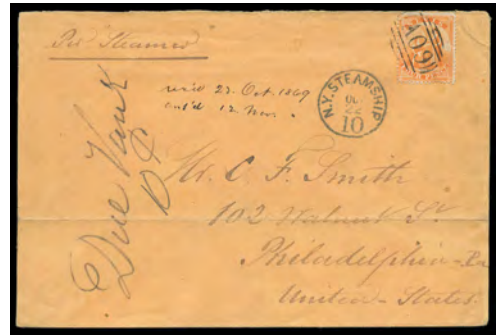 Per Steamer
A09
rec'd 23. Oct. 1869
ans'd 12. Nov.
N.Y. STEAMSHIP
OCT
22
10
Due
Mr. C. F. Smith
102 Walnut St
Philadelphia - Pa
United - States